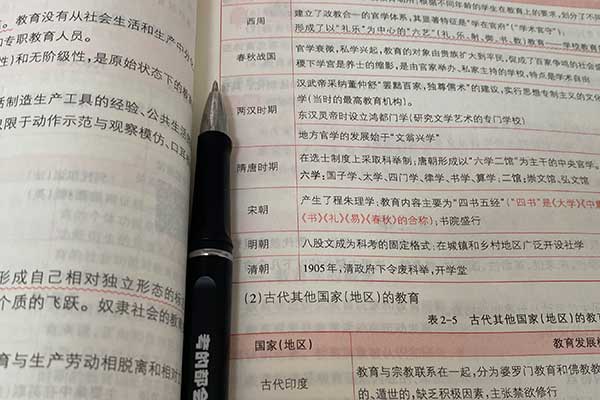 教育没有从社会生活和生产中分
的专职教育人员。
性)和无阶级性,是原始状态下的教
活制造生产工具的经验、公共生活
仅限于动作示范与观察模仿、口耳
形成自己相对独立形态的标
个质的飞跃。奴隶社会的教
育与生产劳动相脱离和相对
考的都会
西周
建立了政教合一的官学体系,其显著特征是“学在官府”(“学术官守”);
形成了以“礼乐”为中心的“六艺”(礼、乐、射、御、书、数)教育——学校教育
春秋战国
官学衰微,私学兴起,教育的对象由贵族扩大到平民,促成了百家争鸣的社会盛
稷下学宫是养士的缩影,是由官家举办、私家主持的学校,特点是学术自由
两汉时期
汉武帝采纳董仲舒“罢黜百家,独尊儒术”的建议,实行思想专制主义的文化
学(当时的最高教育机构)。
东汉灵帝时设立鸿都门学(研究文学艺术的专门学校)
地方官学的发展始于“文翁兴学”
隋唐时期
在选士制度上采取科举制;唐朝形成以“六学二馆”为主干的中央官学。
六学:国子学、太学、四门学、律学、书学、算学;二馆:崇文馆、弘文馆
宋朝
产生了程朱理学;教育内容主要为“四书五经”(“四书”是《大学》《中庸
《书》《礼》《易》《春秋》的合称);书院盛行
明朝
八股文成为科考的固定格式;在城镇和乡村地区广泛开设社学
清朝
1905年,清政府下令废科举,开学堂
(2)古代其他国家(地区)的教育
表2-5 古代其他国家(地区)的教
国家(地区)
教育发展概
古代印度
教育与宗教联系在一起,分为婆罗门教育和佛教教
的、遁世的,缺乏积极因素,主张禁欲修行